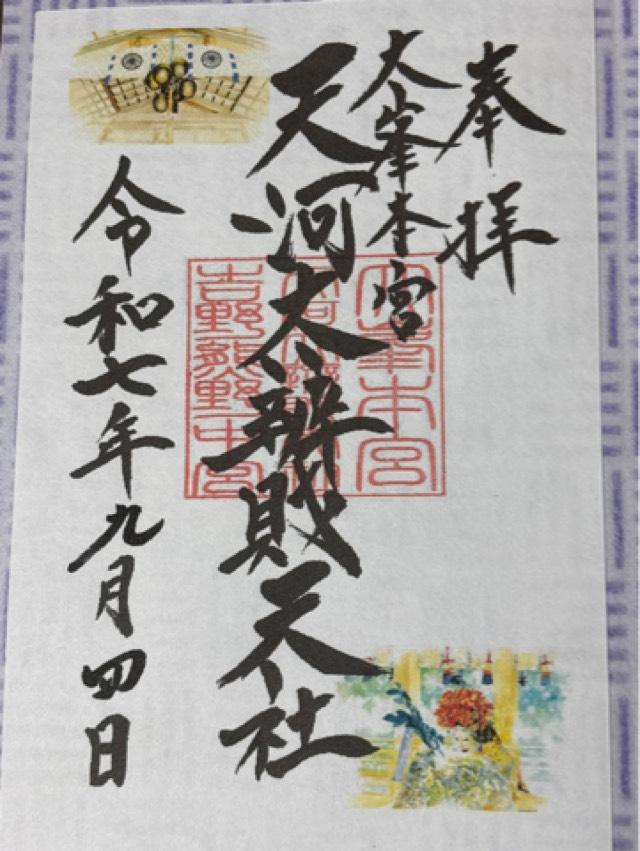 奉拝
大峯本宮
天河大辨財天社
令和七年九月四日
大峯本宮
吉野熊野中宮